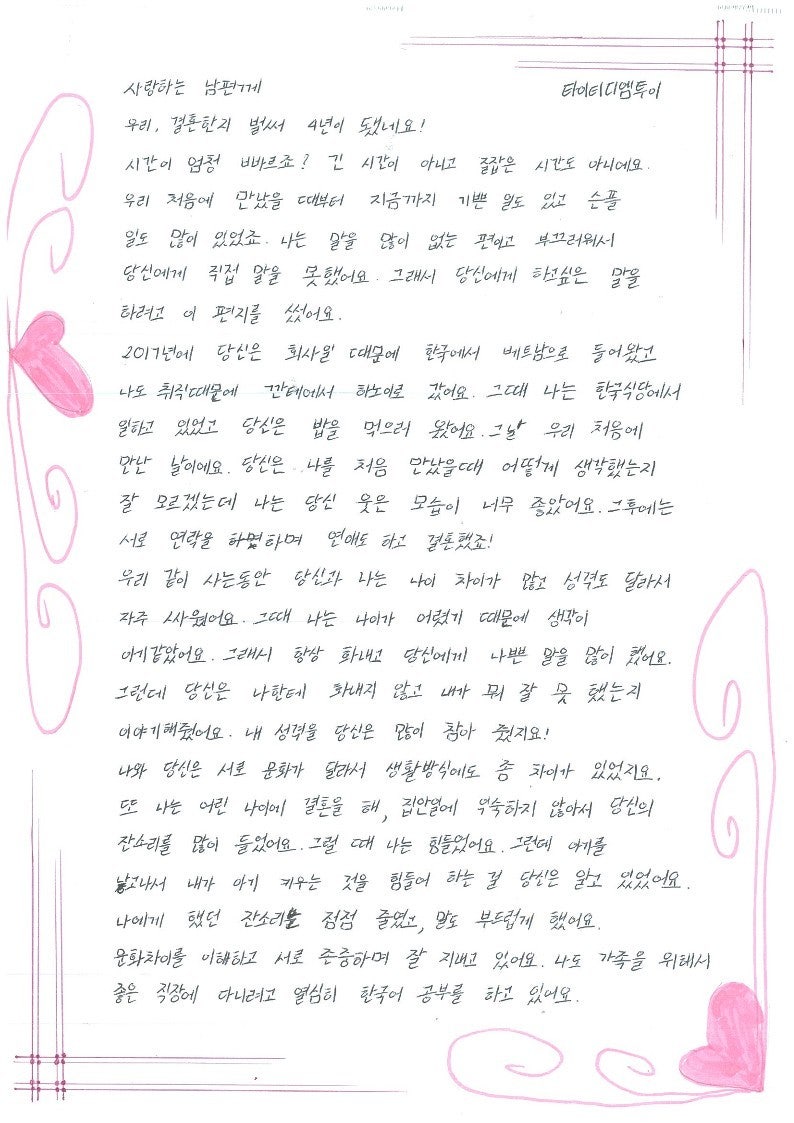 사랑하는 남편께 타이티디엠투이
우리, 결혼한지 벌써 4년이 됐네요!
시간이 엄청 빠르죠? 긴 시간이 아니고 짧은 시간도 아니에요.
우리 처음에 만났을 때부터 지금까지 기쁜 일도 있고 슬픈
일도 많이 있었죠. 나는 말을 많이 없는 편이고 부끄러워서
당신에게 직접 말을 못했어요. 그래서 당신에게 하고싶은 말을
하려고 이 편지를 썼어요.
2017년에 당신은 회사일 때문에 한국에서 베트남으로 들어왔고
나도 취직때문에 껀테에서 하노이로 갔어요. 그때 나는 한국식당에서
일하고 있었고 당신은 밥을 먹으러 왔어요. 그날 우리 처음에
만난 날이에요. 당신은 나를 처음 만났을때 어떻게 생각했는지
잘 모르겠는데 나는 당신 웃은 모습이 너무 좋았어요. 그후에는
서로 연락을 하며 연애도 하고 결혼했죠!
우리 같이 사는동안 당신과 나는 나이 차이가 많고 성격도 달라서
자주 싸웠어요. 그때 나는 나이가 어렸기 때문에 생각이
아기같았어요. 그래서 항상 화내고 당신에게 나쁜 말을 많이 했어요.
그런데 당신은 나한테 화내지 않고 내가 뭐 잘 못 했는지
이야기해줬어요. 내 성격을 당신은 많이 참아 줬지요!
나와 당신은 서로 문화가 달라서 생활방식에도 좀 차이가 있었지요.
또 나는 어린 나이에 결혼을 해, 집안일에 익숙하지 않아서 당신의
잔소리를 많이 들었어요. 그럴 때 나는 힘들었어요. 그런데 아기를
낳고나서 내가 아기 키우는 것을 힘들어 하는 걸 당신은 알고 있었어요.
나에게 했던 잔소리를 점점 줄였고, 말도 부드럽게 했어요.
문화차이를 이해하고 서로 존중하며 잘 지내고 있어요. 나도 가족을 위해서
좋은 직장에 다니려고 열심히 한국어 공부를 하고 있어요.